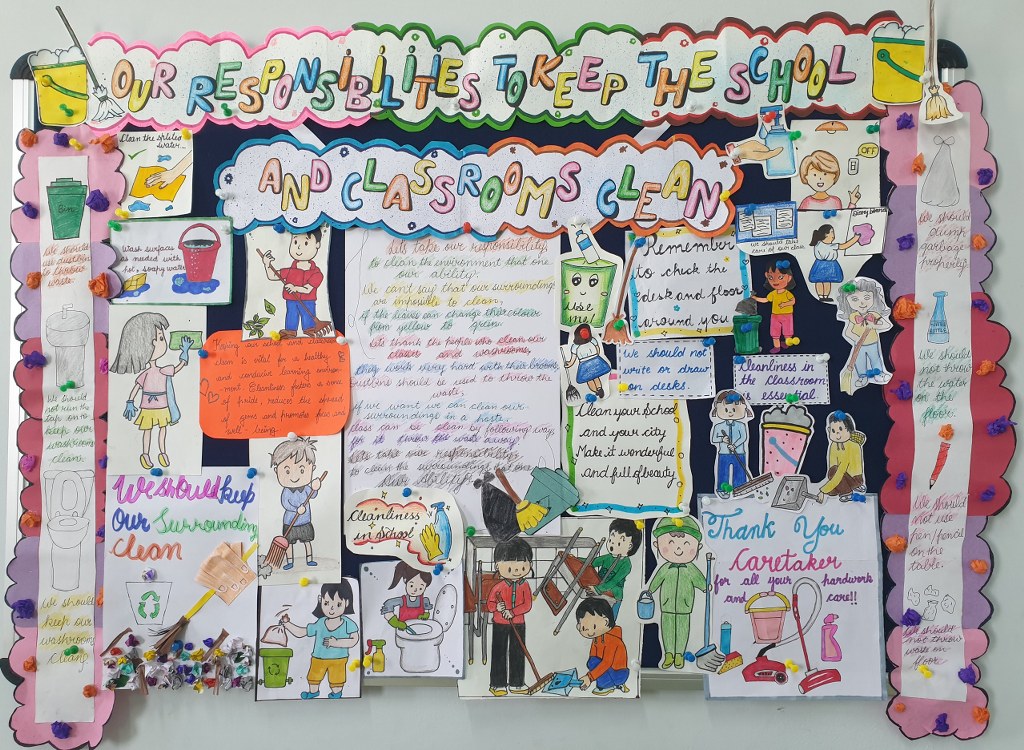 OUR RESPONSIBILITIES TO KEEP THE SCHOOL
AND CLASSROOMS CLEAN
Clean the
water...
BIN
We should
waste.
We should
not run the
on
keep our
washrooms
clean.
We should
keep our
washrooms
clean
Wash surfaces
as needed with
hot, soapy water
clean is vital for a healthy
and conducive learning
ment. Cleanliness
of reduces the spread
of germs and promotes
well-being.
We should keep
Our Surrounding
clean
Lets take our responsibility
to clean the environment that one
our ability.
We can't say that our surrounding
are impossible to clean,
if the leaves can change their colour
from yellow to green.
Lets thank the people who clean our
classes and washrooms,
they work very hard with their brooms,
dustbins should be used to throw the
waste,
if we want we can clean our
surroundings in a haste,
class can be clean by following way,
for it throw the waste away
Lets take our responsibility
to clean the surrounding that one
our ability.
Cleanliness
in School
Use
me!
Remember
to chick the
desk and floor
around you
we should take
care of our class
OFF
we should not
write or draw
on desks.
Cleanliness in
the classroom
is essential
Clean your School
and your city
Make it wonderful
and full of beauty
Thank You
Caretaker
for all your hardwork
and care!!
We should
dump
garbage
properly.
We should
not throw
the water
on the
floor.
We should
not use
pen/pencil
on the
table.
We should
not throw
waste on
floor